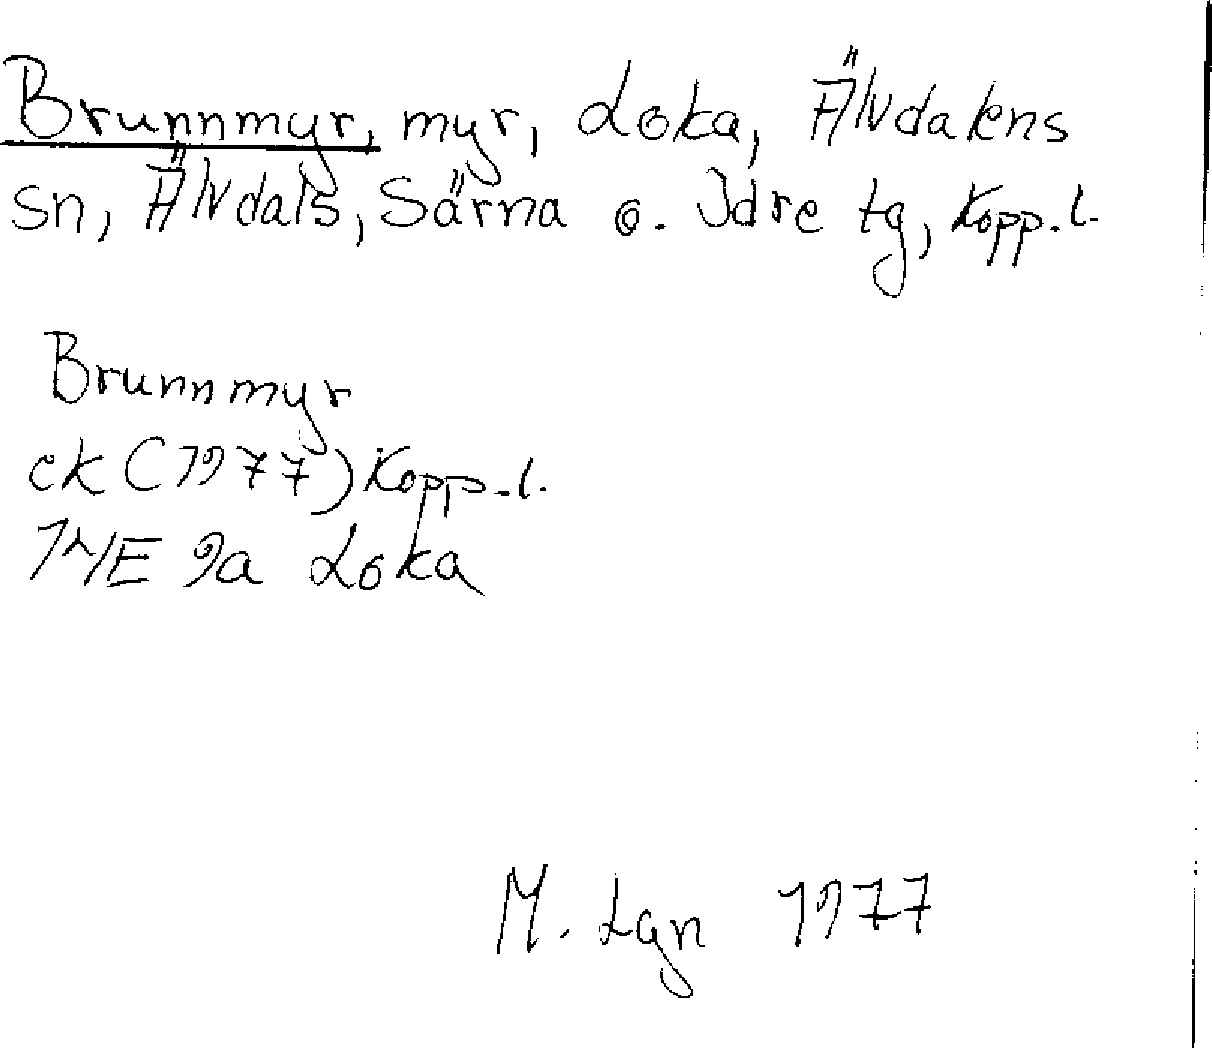 Brunnmyr, myr, Loka, Älvdalens
sn, Älvdals, Särna o. Idre tg, Kopp.l.
Brunnmyr
ek (1977) Kopp.l.
14E 9a Loka
M. Lgn 1977